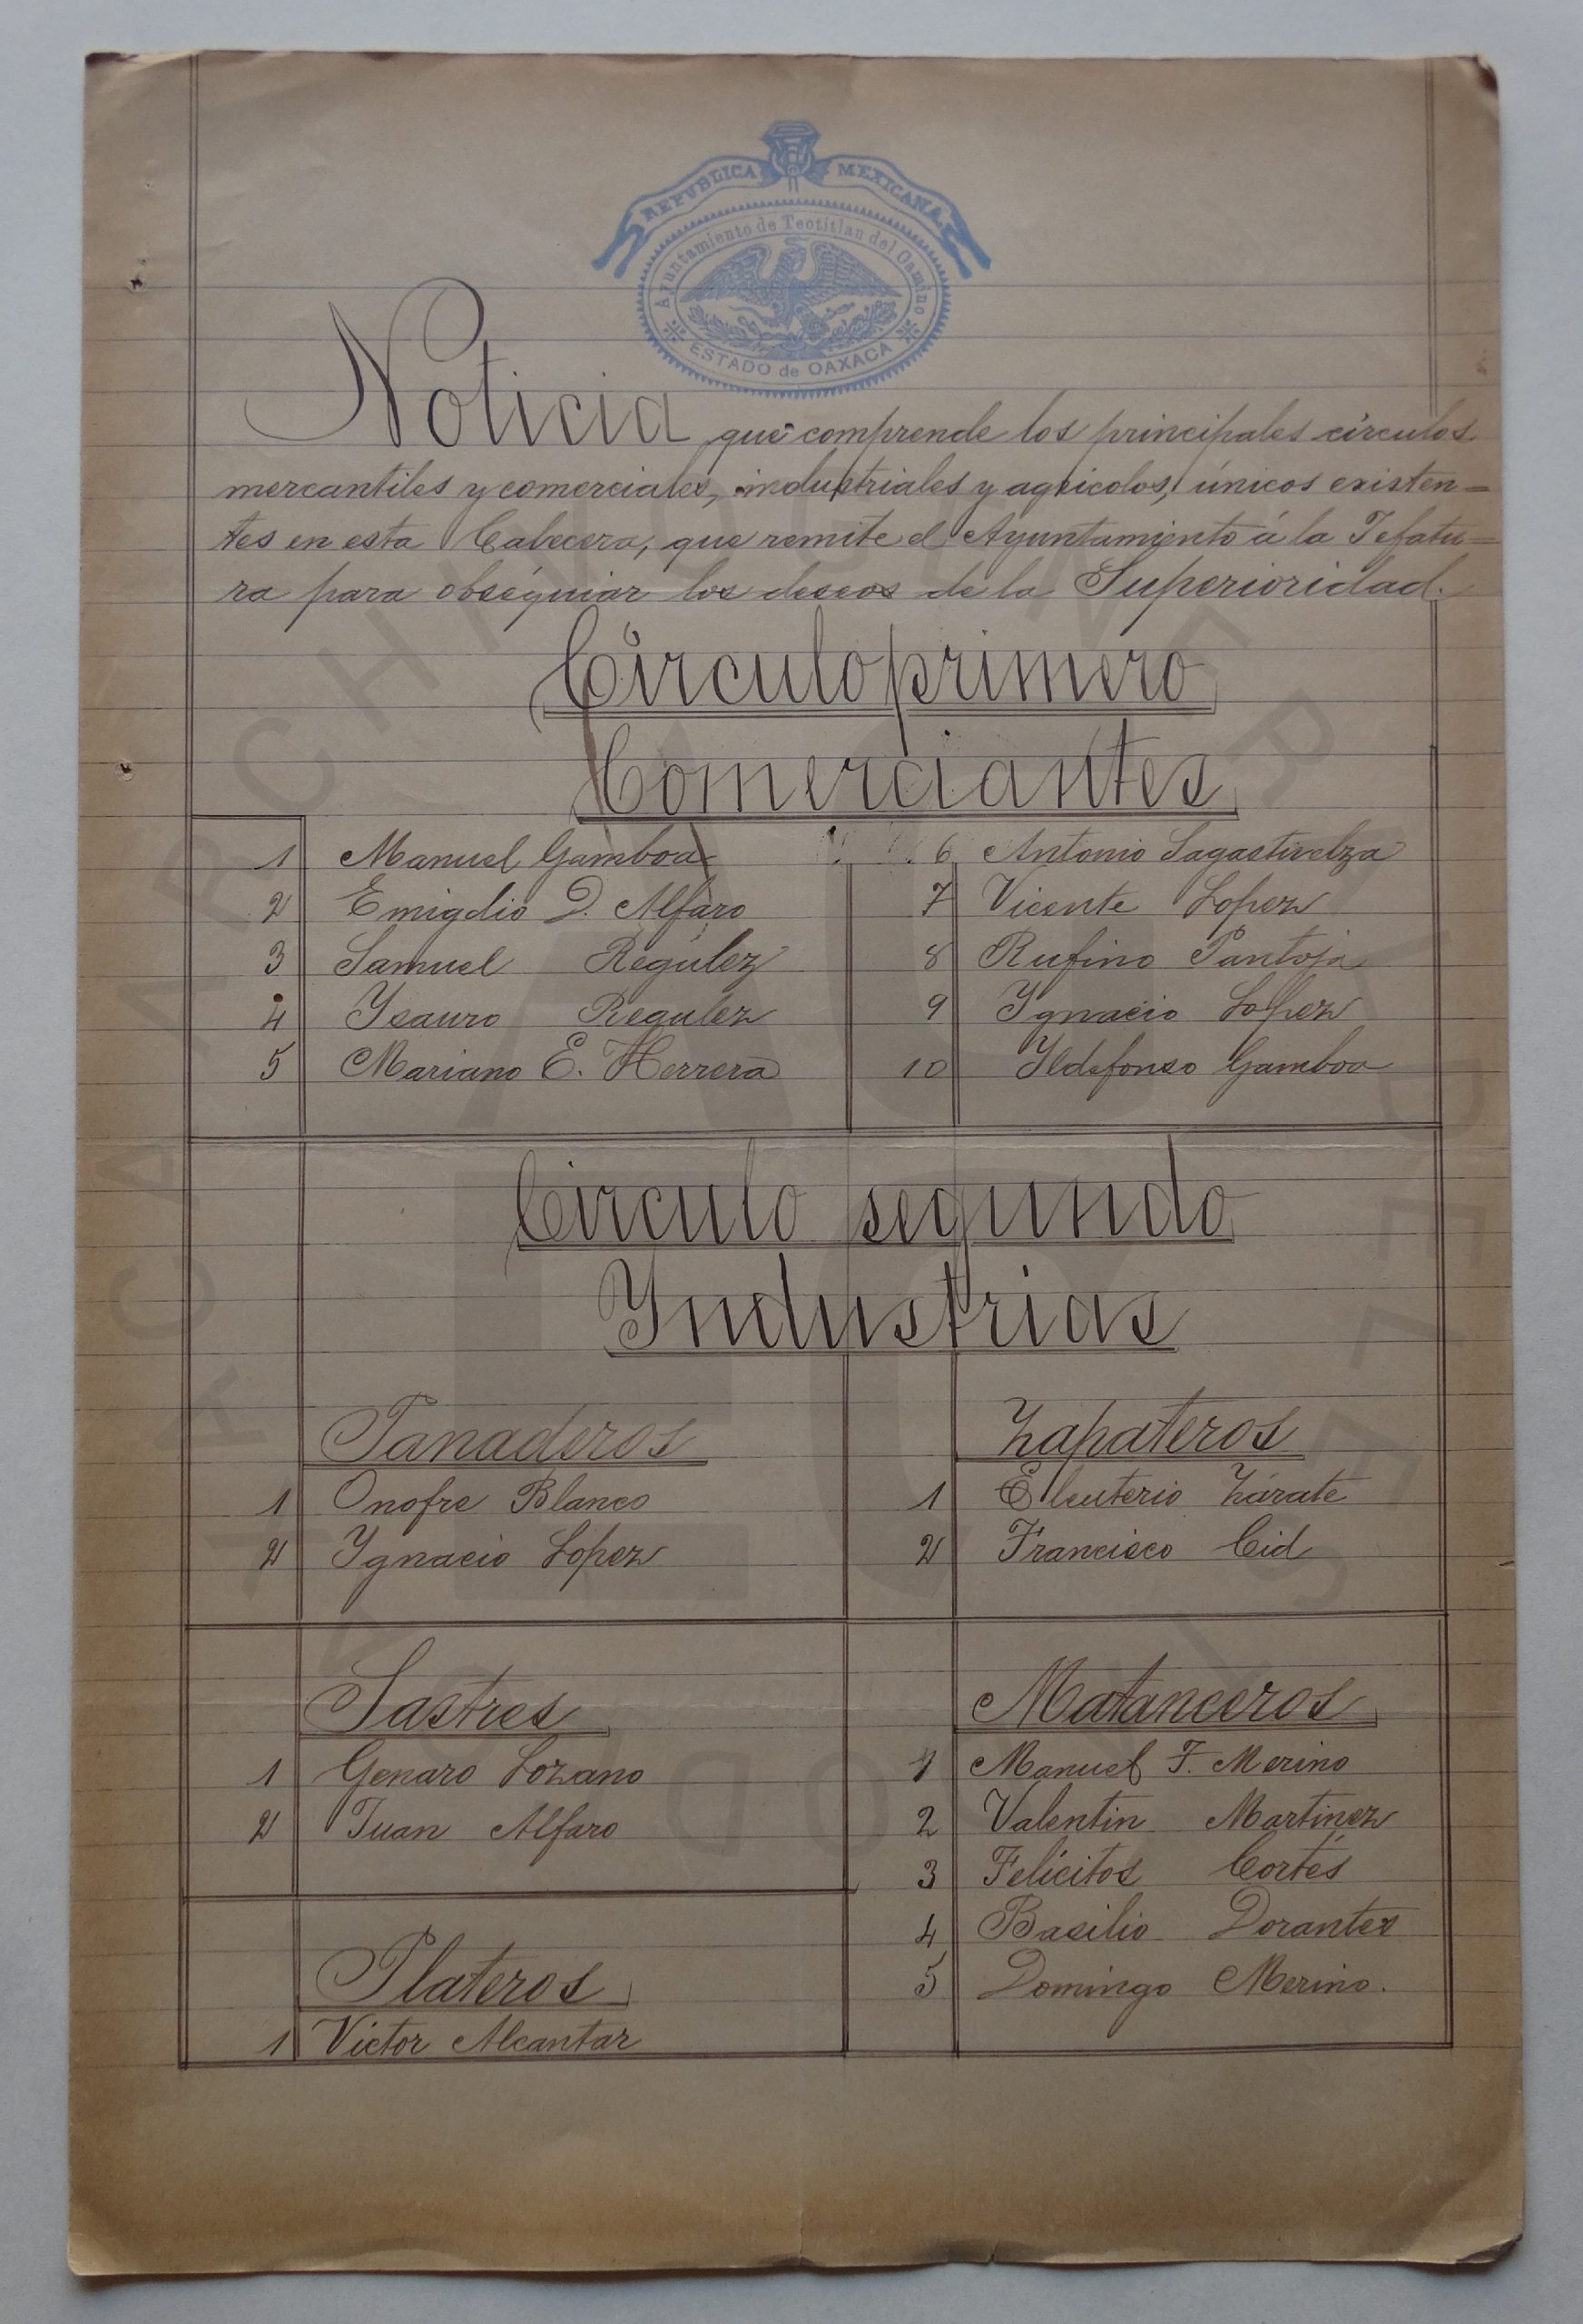 REPVBLICA MEXICANA
Ayuntamiento de Teotitlan del Camino
ESTADO de OAXACA
Noticia que comprende los principales círculos
mercantiles y comerciales, industriales y agricolos, únicos existen=
tes en esta Cabecera, que remite el Ayuntamiento á la Jefatu=
ra para obsequiar los deseos de la Superioridad.
Círculo primero
Comerciantes
1 Manuel Gamboa
2 Emigdio D. Alfaro
3 Samuel Regúlez
4 Ysauro Regulez
5 Mariano E. Herrera
6 Antonio Sagastivelza
7 Vicente Lopez
8 Rufino Pantoja
9 Ygnacio Lopez
10 Yldefonso Gamboa
Círculo segundo
Yndustrias
Panaderos
1 Onofre Blanco
2 Ygnacio López
Zapateros
1 Eleuterio Zárate
2 Francisco Cid
Sastres
1 Genaro Lozano
2 Juan Alfaro
Matanceros
1 Manuel F. Merino
2 Valentin Martinez
3 Felícitos Cortés
4 Basilio Dorantes
5 Domingo Merino.
Plateros
1 Victor Alcantar